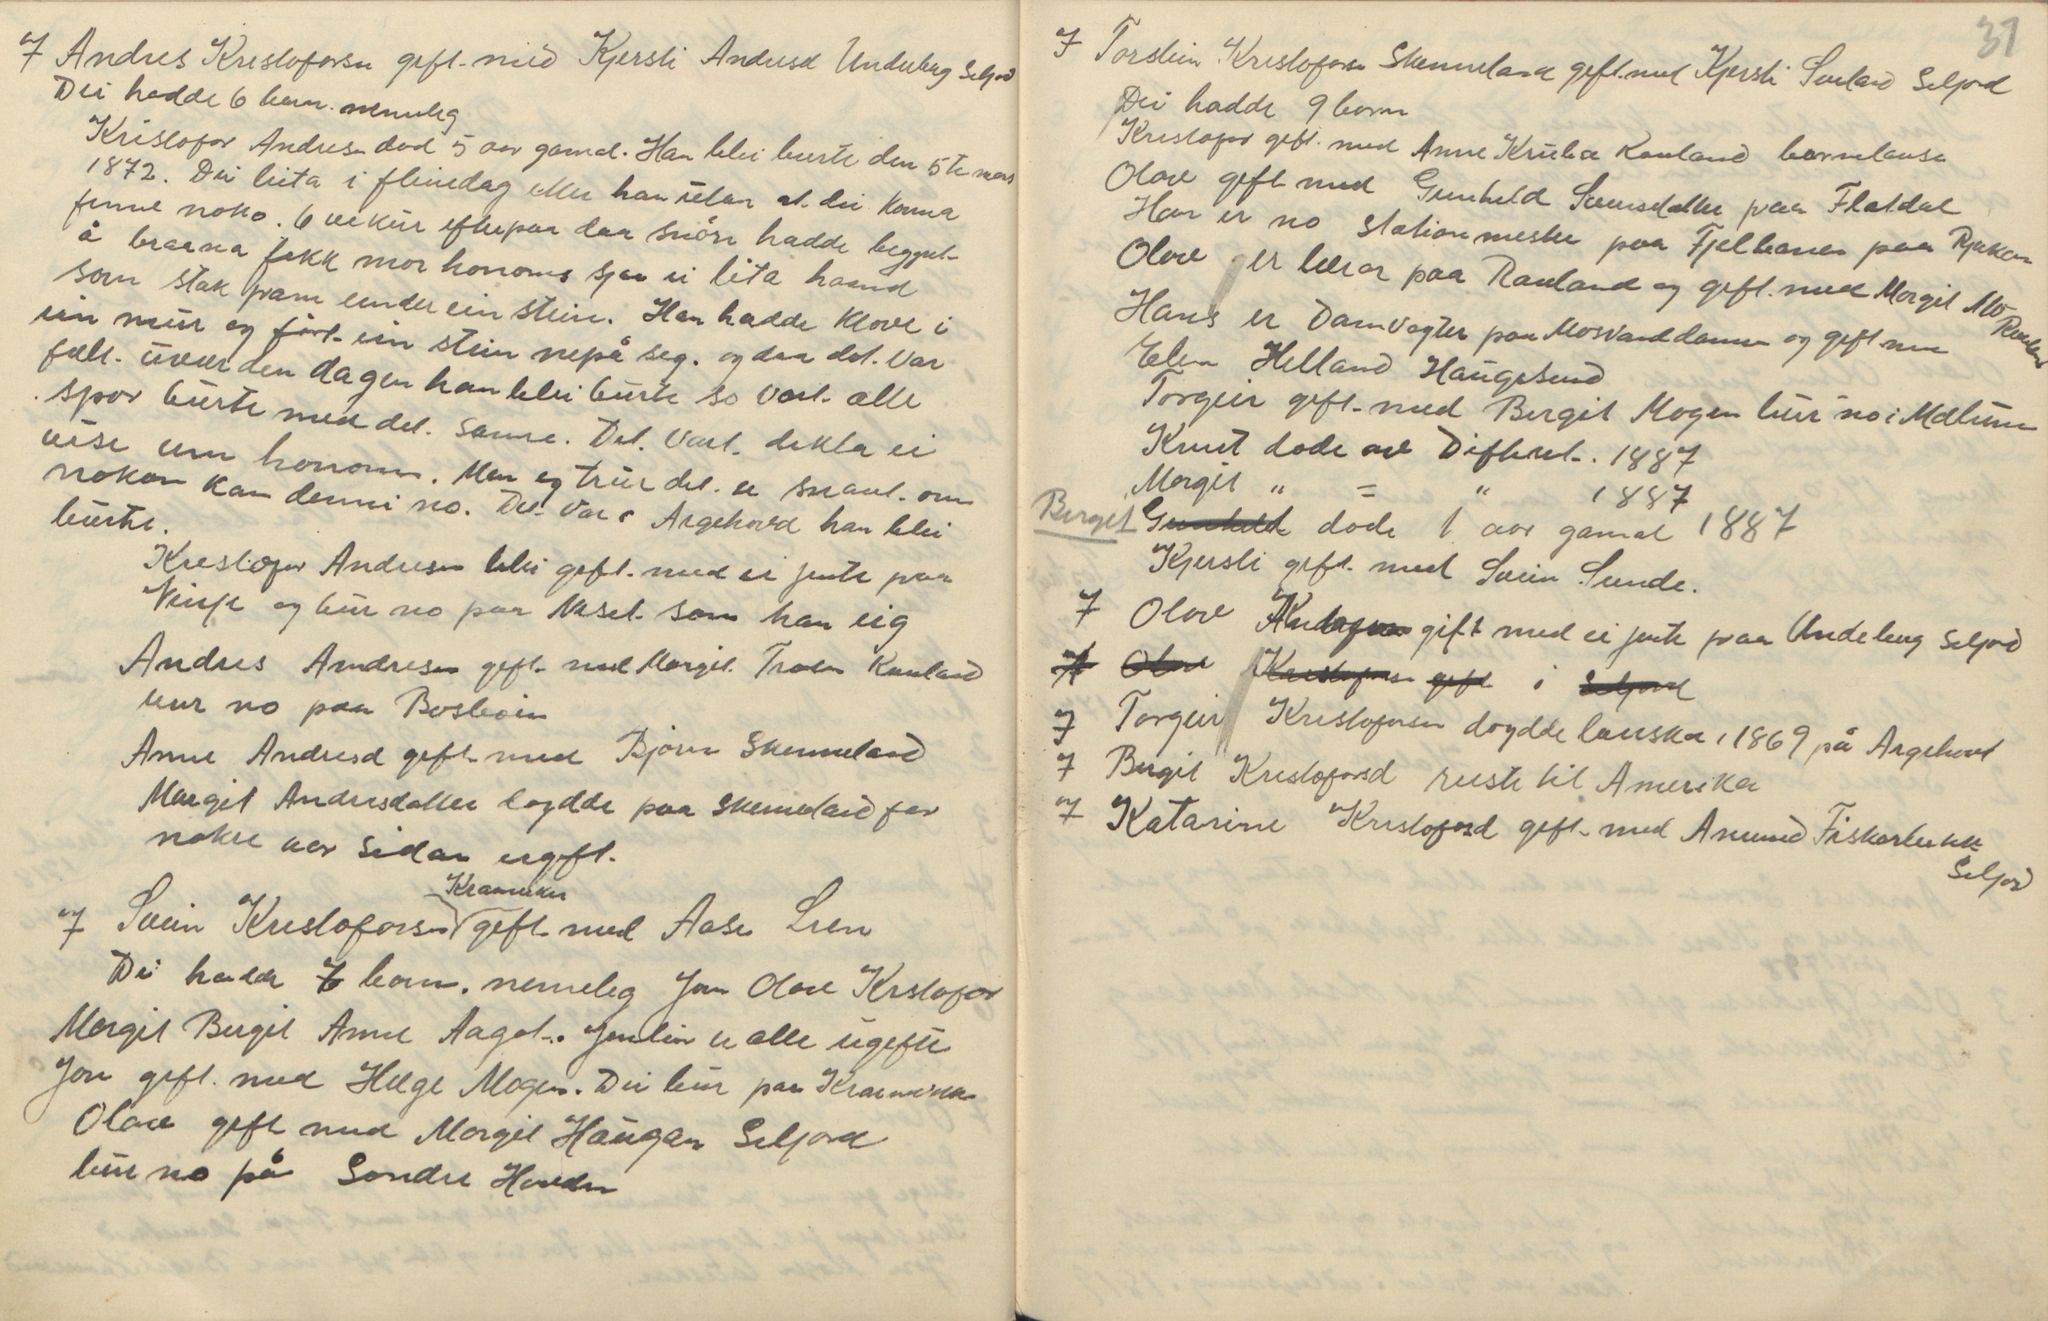 7 Andres Kristoforsn gift med Kjersti Andresd Underberg Seljord
Dei hadde 6 born. nemleg
Kristofor Andresn død 5 aar gamal. Han blei burte den 5te mars
1872. Dei leita i fleire dag etter han utan at dei konna
finne noko. 6 vekur efterpaa daa snöen hadde byggut
å braana fekk mor honoms sjaa ei lita haand
som stak fram under ein stein. Han hadde klove i
ein mur og fört ein stein nepå seg. og daa det var
falt uver den dagen han blei burte so vart alle
spor burte med det same. Det vart dikta ei
vise um honom. Men eg trur det er snaut om
nokon kan denni no. Det var i Argehovd han blei
burte.
Kristofor Andresn blei gift med ei jente paa
Vinje og bur no paa Neset som han eig
Andres Andresn gift med Margit Traen Rauland
bur no paa Bosbøen
Anne Andresd gift med Bjørn Skinneland
Margit Andresdatter løydde paa Skinneland for
nokre aar sidan ugift.
Kramviken
7 Svein Kristoforsn gift med Aase Lien
Dei hadde 7 born. nemeleg Jon Olav Kristofor
Margit Bergit Anne Aagot. Jentin er alle ugifte
Jon gift med Helge Mogen. Dei bur paa Kramvika
Olav gift med Margit Haugan Seljord
bur no på Sondre Hovden
31
7 Torstein Kristoforsn Skinneland gift med Kjersti Sveland Seljord
Dei hadde 9 born
Kristofor gift med Anne Rauland bornelause
Olav gift med Gunhild Sveinsdatter paa Flatdal
Han er no stationmester paa Fjelbanen paa Rjukan
Olav er lærar paa Rauland og gift med Margit Mo
Rauland
Hans er Damvogter paa Mosvanddammen og gift med
Elen Helland Haugesund
Torgeir gift med Bergit Mogen bur no i Mælum
Knut døde av Difterit. 1887
Margit " = " 1887
Bergit Gunhild døde 1 aar gamal 1887
Kjersti gift med Svein Sunde.
7 Olav gift med ei jente paa Underberg Seljord
7 Olav Kristoforsn gift i Seljord
7 Torgeir Kristoforsn døydde barnska i 1869 på Argehovd
7 Bergit Kristoforsd reiste til Amerika
7 Katarine Kristofosd gift med Amund Fiskarbekk
Seljord